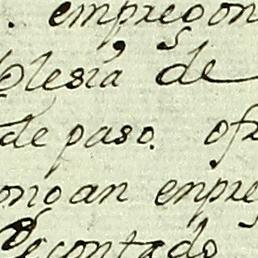 . empreqon
glesia de
de paso. ofr
ongan enpre
contado